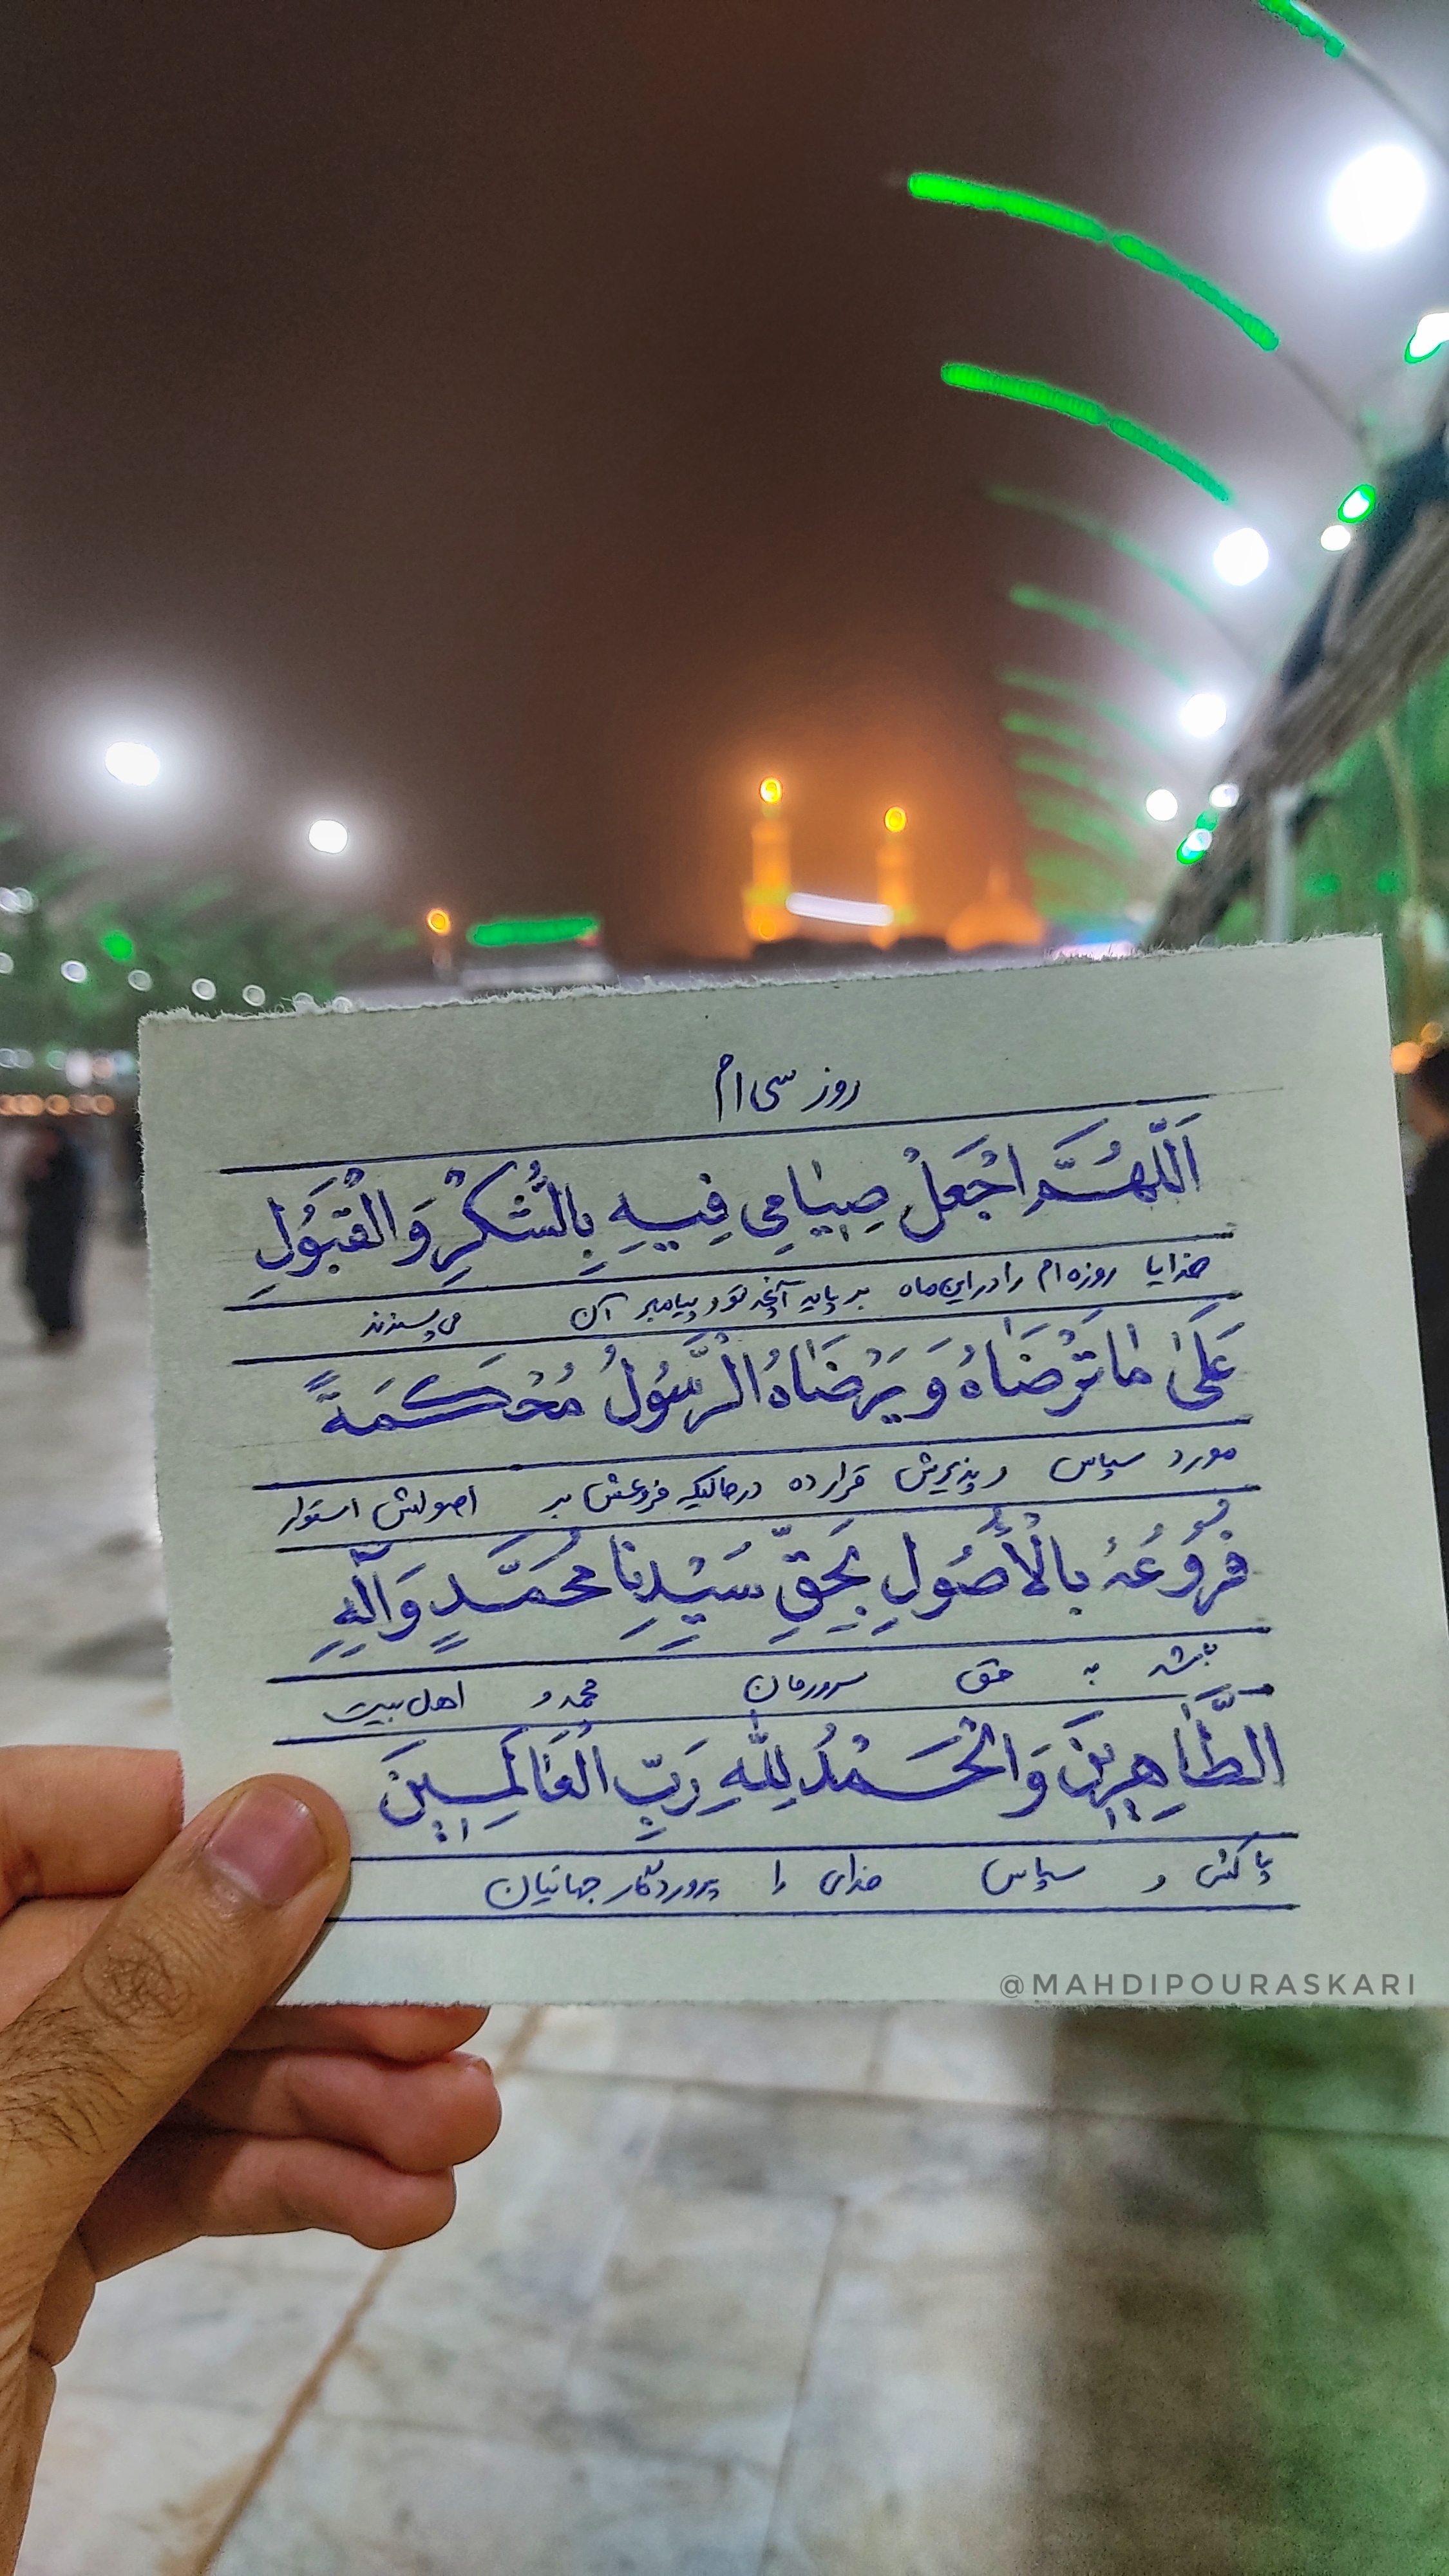 روز سی ام
اَللّهُمَّ اجْعَلْ صِیٰامِی فِیهِ بِالشُّکْرِ وَالْقَبُولِ
خدایا روزه ام را در این ماه بر پایه آنچه تو و پیامبر آن می پسندند
عَلیٰ مٰا تَرْضٰاهُ وَ یَرْضٰاهُ الرَّسُولُ مُحْکَمَةً
مورد سپاس و پذیرش قرار ده درحالیکه فروعش بر اصولش استوار
فُرُوعُهُ بِالْأُصُولِ بِحَقِّ سَیِّدِنٰا مُحَمَّدٍ وَآلِهِ
باشد به حق سرورمان محمد و اهل بیت
الطّٰاهِرِینَ وَ الْحَمْدُ لِلّٰهِ رَبِّ الْعٰالَمِینَ
پاکش و سپاس خدای را پروردگار جهانیان
@MAHDIPOURASKARI